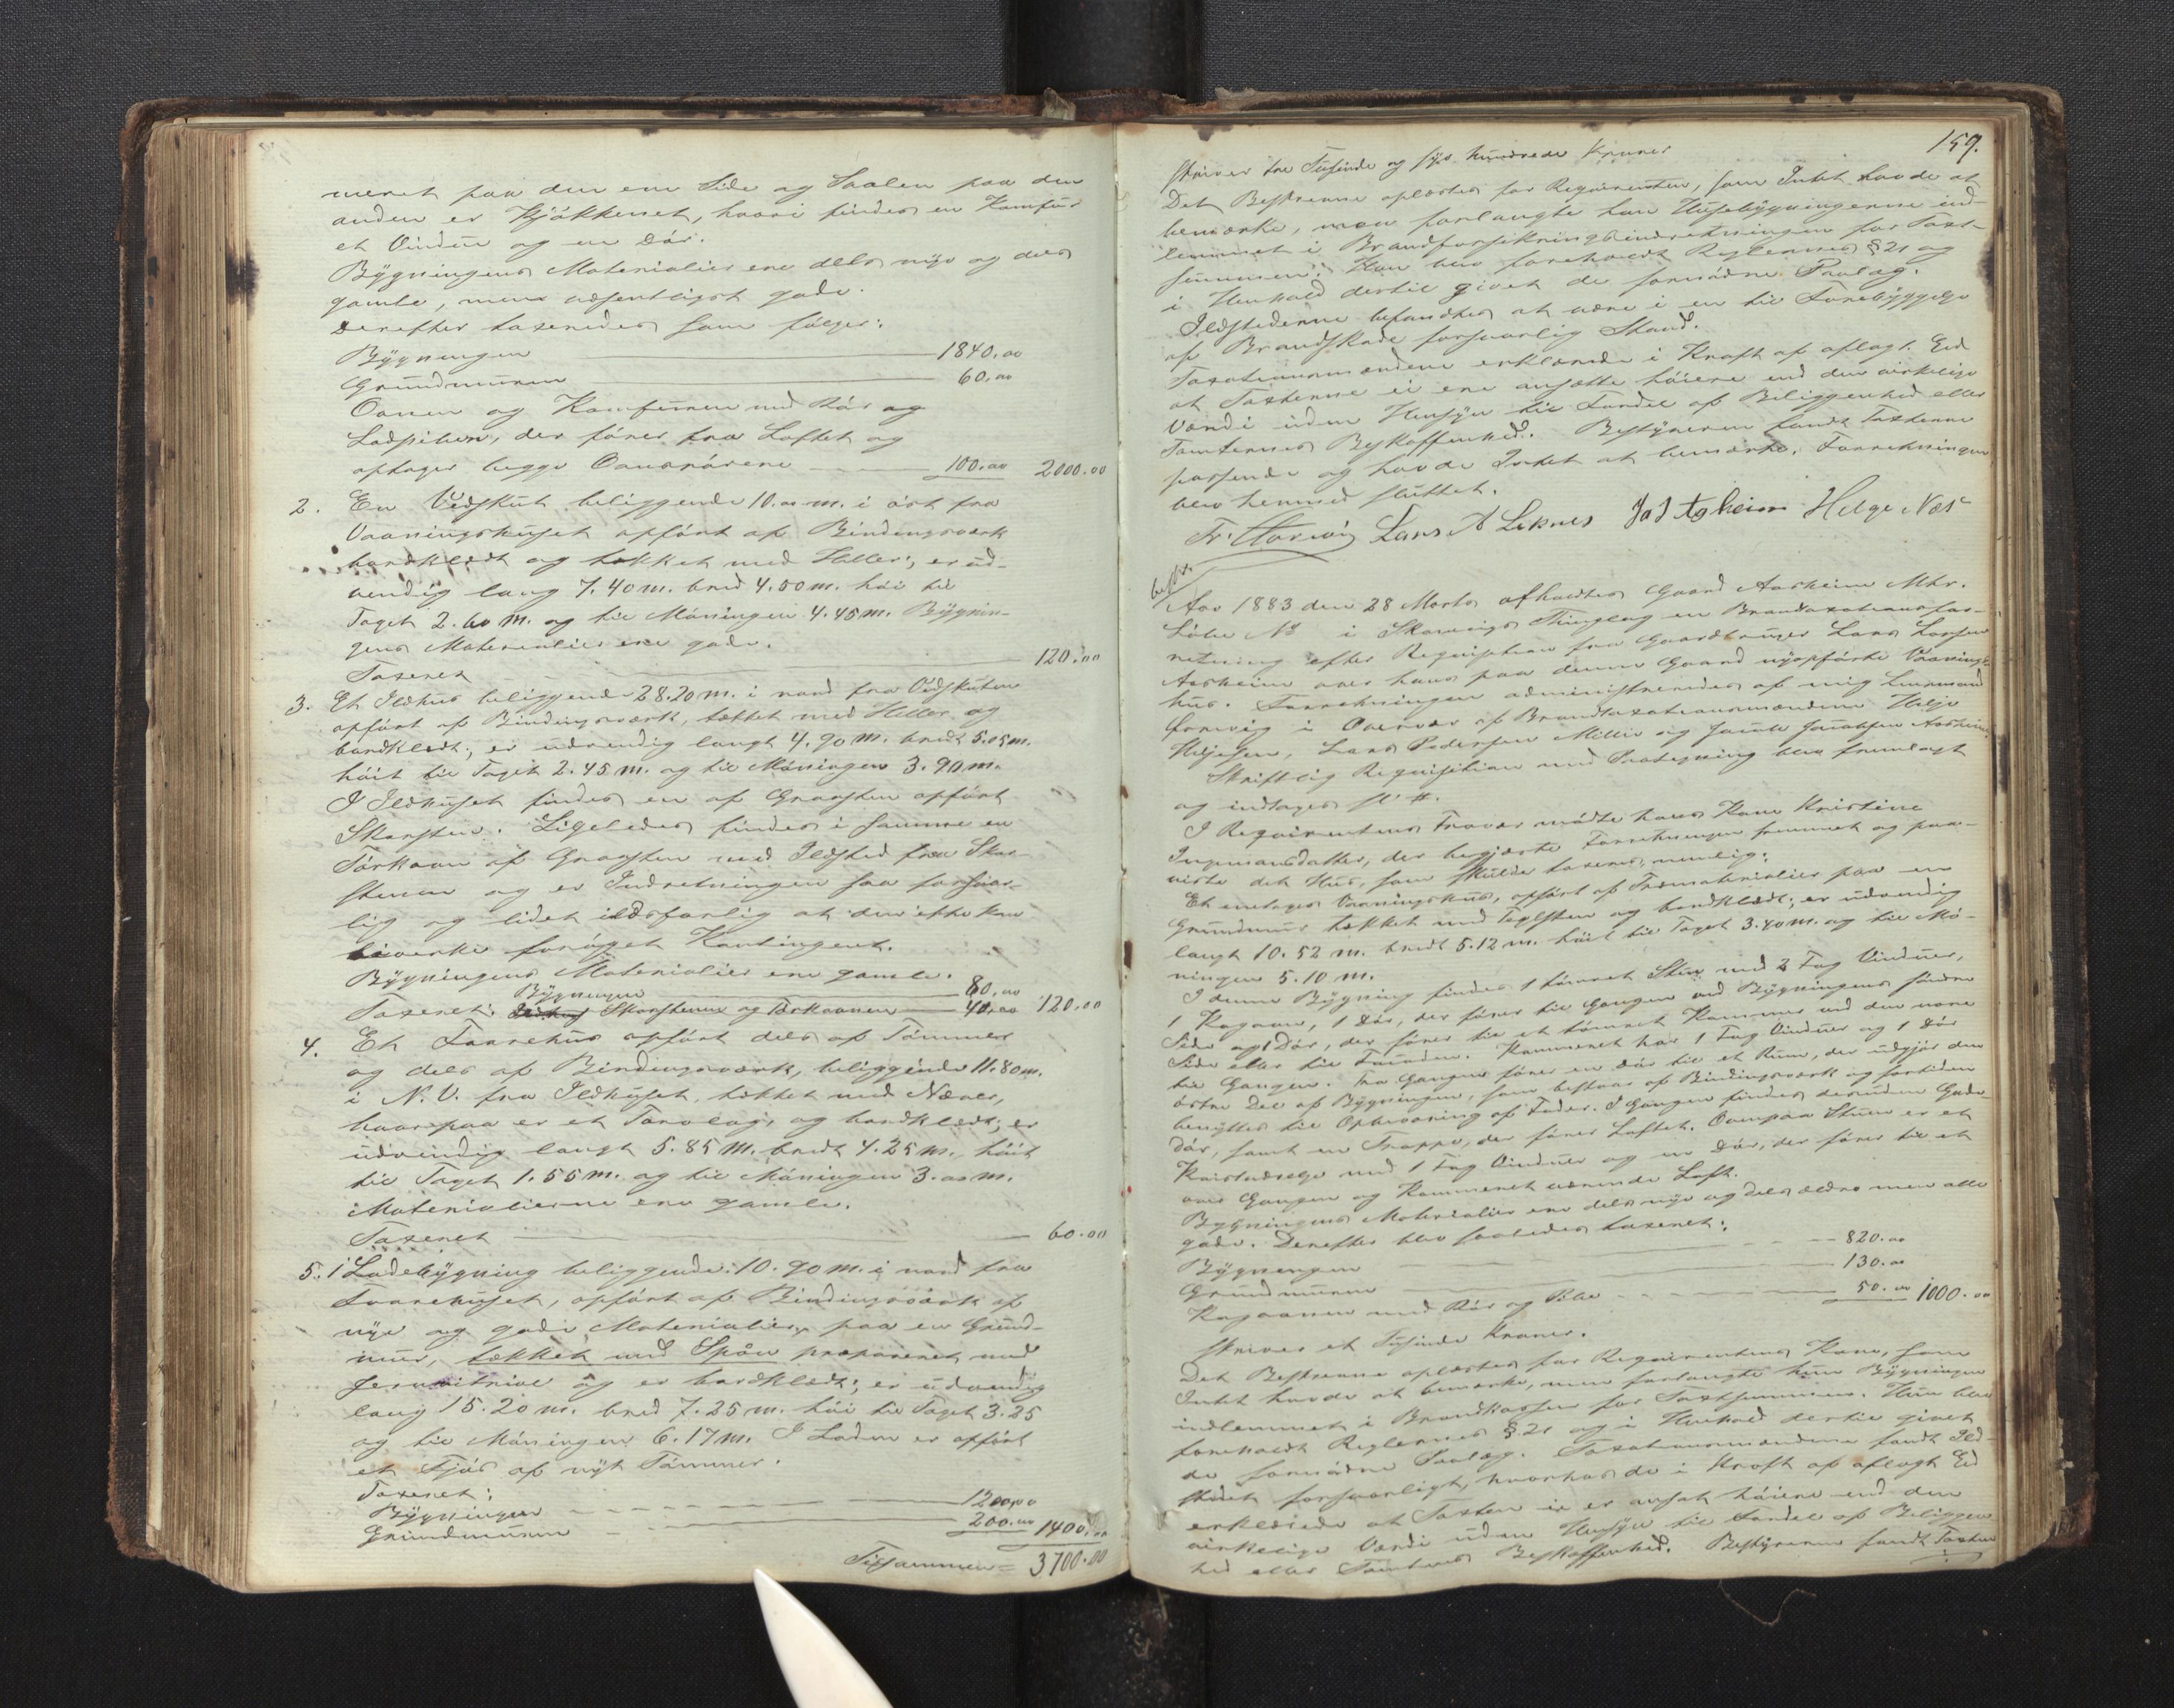 meret paa den ene Side og Svalen paa den
anden er Kjökkenet, hvori findes en Komfur
et Vindu og en Dör.
Bygningens Materialier ere dels nye og dels
gamle, men væsentligst gode.
Derefter taxeredes som fölger:
Bygningen 1840.00
Grundmuren 60.00
Ovnen og Komfuren med Rör og
Ladpiben, der förer fra Loftet og
optager begge Ovnsrörene 100.00 2000.00
2. En Vedskut beliggende 10.00 m. i öst fra
Vaaningshuset opfört af Bindingsværk
bordklædt og tækket med Heller; er ud-
vendig lang 7.40 m. bred 4.50 m. höi til
Taget 2.60 m. og til Möningen 4.45 m. Bygnin-
gens Materialier ere gode.
Taxeret 120.00
3. Et Ildhus beliggende 28.20 m. i nord fra Vedskuten
opfört af Bindingsværk, tækket med Heller og
bordklædt; er udvendig langt 4.90 m. bredt 5.05 m.
höit til Taget 2.45 m. og til Möningen 3.90 m.
I Ildhuset findes en af Graasten opfört
Skorsten. Ligeledes findes i samme en
Törkovn af Graasten med Ildsted fra Skor-
stenen og er Indretningen saa forsvar-
lig og lidet ildsfarlig at den ikke kan
bevirke foröget Kontingent.
Bygningens Materialier ere gamle.
Taxeret: Bygningen 80.00
Skorstenen og Törkovnen 40.00 120.00
4. Et Torvehus opfört dels af Tömmer
og dels af Bindingsværk, beliggende 11.80 m.
i N.V. fra Ildhuset, tækket med Næver,
hvorpaa er et Torvlag, og bordklædt; er
udvendig langt 5.85 m. bredt 4.25 m., höit
til Taget 1.55 m. og til Möningen 3.00 m.
Materialierne ere gamle.
Taxeret 60.00
5. 1 Ladebygning beliggende 10.90 m. i nord fra
Torvehuset, opfört af Bindingsværk af
nye og gode Materialier, paa en Grund-
mur, tækket med Spån præpareret med
Jernvitriol og er bordklædt; er udvendig
lang 15.20 m. bred 7.25 m. höi til Taget 3.25
og til Möningen 6.17 m. I Laden er opfört
et Fjös af nyt Tömmer.
Taxeret:
Bygningen 1200.00
Grundmuren 200.00 1400.00
Tilsammen = 3700.00
159.
skriver tre Tusinde og syv hundrede Kroner
Det Beskrevne oplæstes for Rekvirenten, som Intet havde at
bemærke, men forlangte han Husebygningerne ind-
lemmet i Brandforsikringsindretningen for Taxt-
summen. Han blev foreholdt Reglernes § 21 og
i Henhold dertil givet de fornödne Paalæg.
Ildstederne befandtes at være i en til Forebyggelse
af Brandskade forsvarlig Stand.
Taxationsmændene erklærede i Kraft af aflagt Ed
at Taxterne ei ere ansatte höiere end den virkelige
Værdi uden Hensyn til Fordel af Beliggenhed eller
Tomternes Beskaffenhed. Bestyreren fandt Taxterne
passende og havde Intet at bemærke. Forretningen
blev hermed sluttet.
Lars A Leknes J a J Asheim Helge Næs
Aar 1883 den 28 Marts afholdtes Gaard Aarheim Mtr.
Löbe No i Skorvigs Thinglag en Brandtaxationsfor-
retning efter Requisition fra Gaardbruger Lars Larsen
Aasheim over hans paa denne Gaard nyopförte Vaanings-
hus. Forretningen administreredes af mig Lensmand
i Overvær af Brandtaxationsmændene Helje
Heljesen, Lars Pedersen Millie og Jacob Jacobsen Aasheim.
Skriftlig Requisition med Paategning blev fremlagt
og indtages sl. #.
I Requirentens Fravær mödte hans Kone Kristine
Ingemansdatter, der begjærte Forretningen fremmet og paa-
viste det Hus, som skulde taxeres, nemlig:
Et enetages Vaaningshus, opfört af Træmaterialier paa en
Grundmur tækket med teglsten og bordklædt; er udvendig
langt 10.52 m. bredt 5.12 m. höit til Taget 3.40 m. og til Mö-
ningen 5.10 m.
I denne Bygning findes 1 tömret Stue med 2 Fag Vinduer,
1 Kogovn, 1 Dör, der förer til Gangen ved Bygningens söndre
Side og 1 Dör, der förer til et tömret Kammer ved den nore
Side eller til Fronden. Kammeret har 1 Fag Vinduer og 1 Dör
til Gangen. Fra Gangen förer en Dör til et Rum, der udgjör den
östre Del af Bygningen, som bestaar af Bindingsværk og fortiden
benyttes til Opbevaring af Foder. I Gangen findes desuden Gade-
dör, samt en Trappe, der förer Loftet. Ovenpaa Stuen er et
Kvistværelse med 1 Fag Vinduer og en Dör, der förer til et
over Gangen og Kammeret værende Loft.
Bygningens Materialier ere dels nye og dels ældre men alle
gode. Derefter blev saaledes taxeret:
Bygningen 820.00
Grundmuren 130.00
Kogovnen med Rör og Pibe 50.00 1000.00
skriver et Tusinde Kroner.
Det Beskrevne oplæstes for Requirentens Kone, som
Intet havde at bemærke, men forlangte hun Bygningen
indlemmet i Brandkassen for Taxtsummen. Hun blev
foreholdt Reglernes § 21 og i Henhold dertil givet
de fornödne Paalæg. Taxationsmændene fandt Ild-
stedet forsvarligt, hvorhos de i Kraft af aflagt Ed
erklærede at Taxten ei er ansat höiere end den
virkelige Værdi uden Hensyn til Fordel af Beliggen-
hed eller Tomtens Beskaffenhed. Bestyreren fandt Taxten